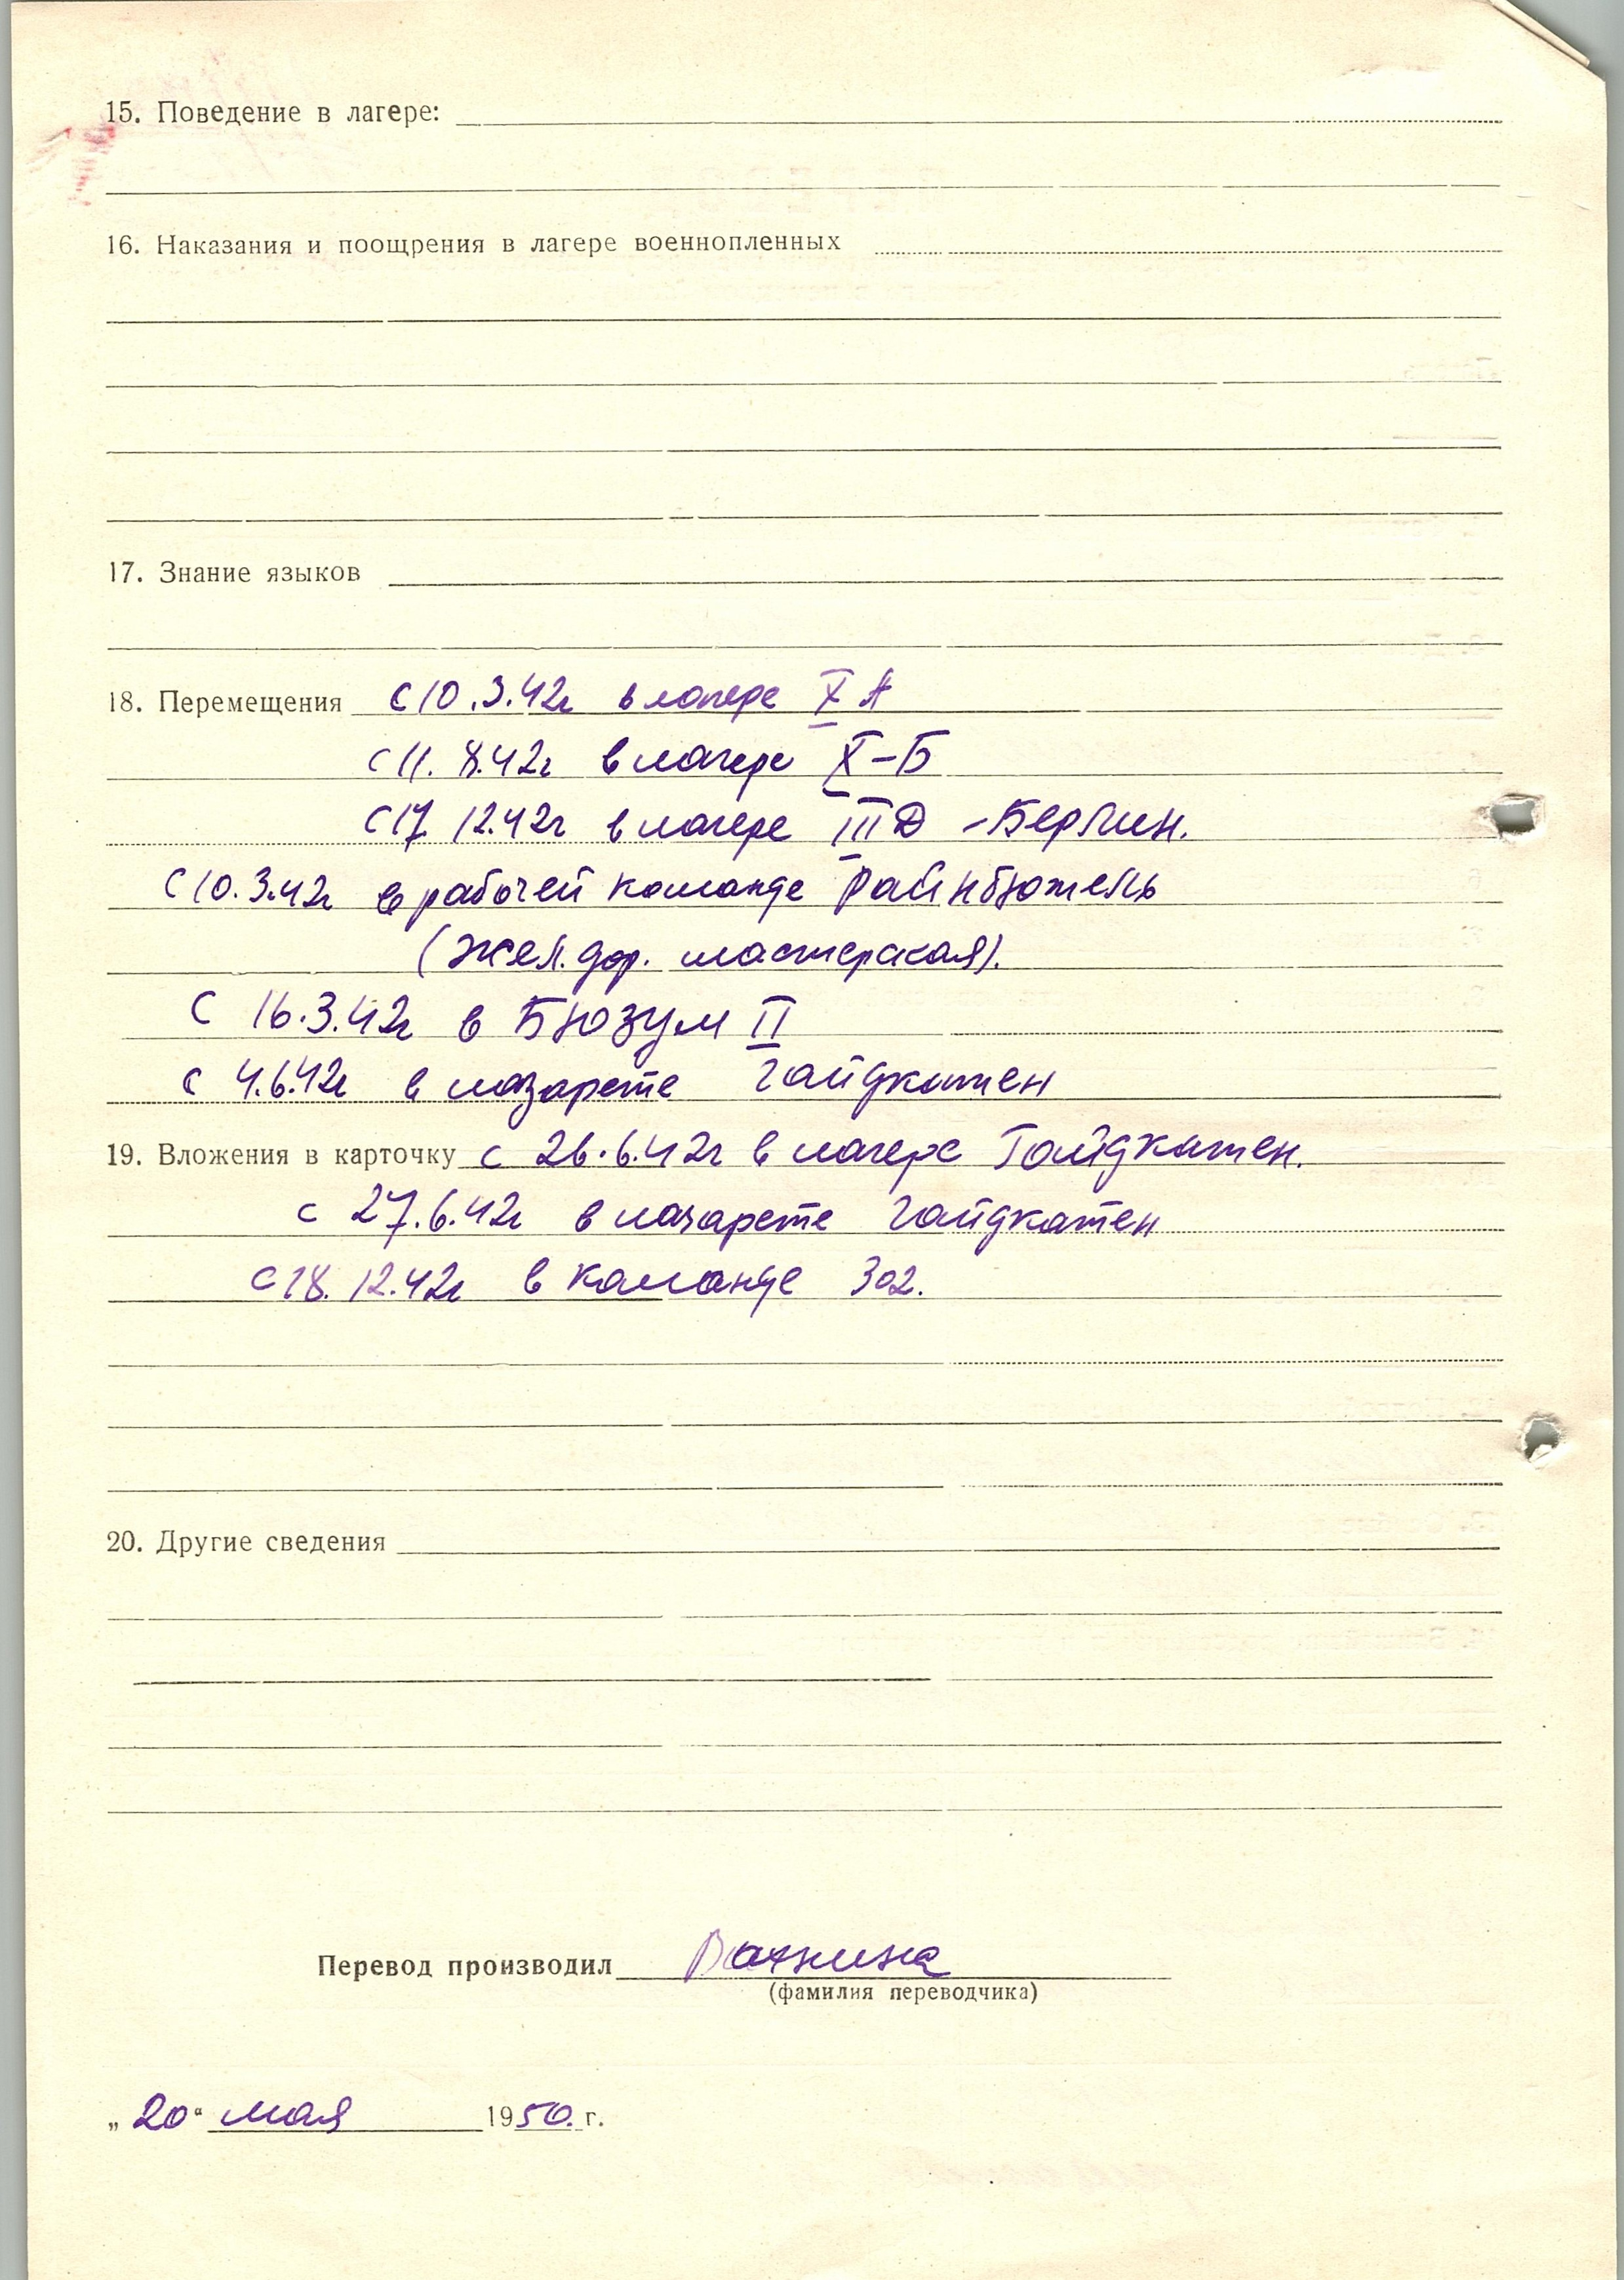 15. Поведение в лагере:
16. Наказания и поощрения в лагере военнопленных
17. Знание языков
18. Перемещения с 10.3.42г в лагере X А
с 11. 8.42г в лагере X-Б
с 17. 12.42г в лагере III Д - Берлин.
с 10.3.42г в рабочей команде Райнбютель
(жел. дор. мастерская).
с 16.3.42г в Бюзум II
с 4.6.42г в лазарете Гайдкатен
19. Вложения в карточку с 26.6.42г в лагере Гайдкатен.
с 27.6.42г в лазарете Гайдкатен
с 18. 12.42г в команде 302.
20. Другие сведения
Перевод производил
(фамилия переводчика)
„20" мая 1950. г.